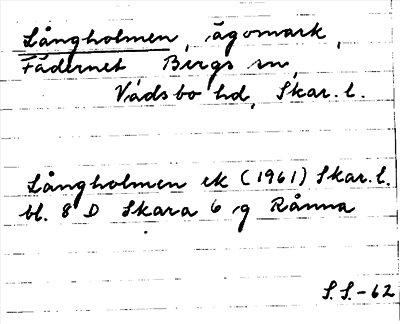 Långholmen, ägomark,
Fädernet Bergs sn,
Vadsbo hd, Skar. l.
Långholmen ek (1961) Skar. l.
bl. 8 D Skara 6 g Rånna
S.S.-62